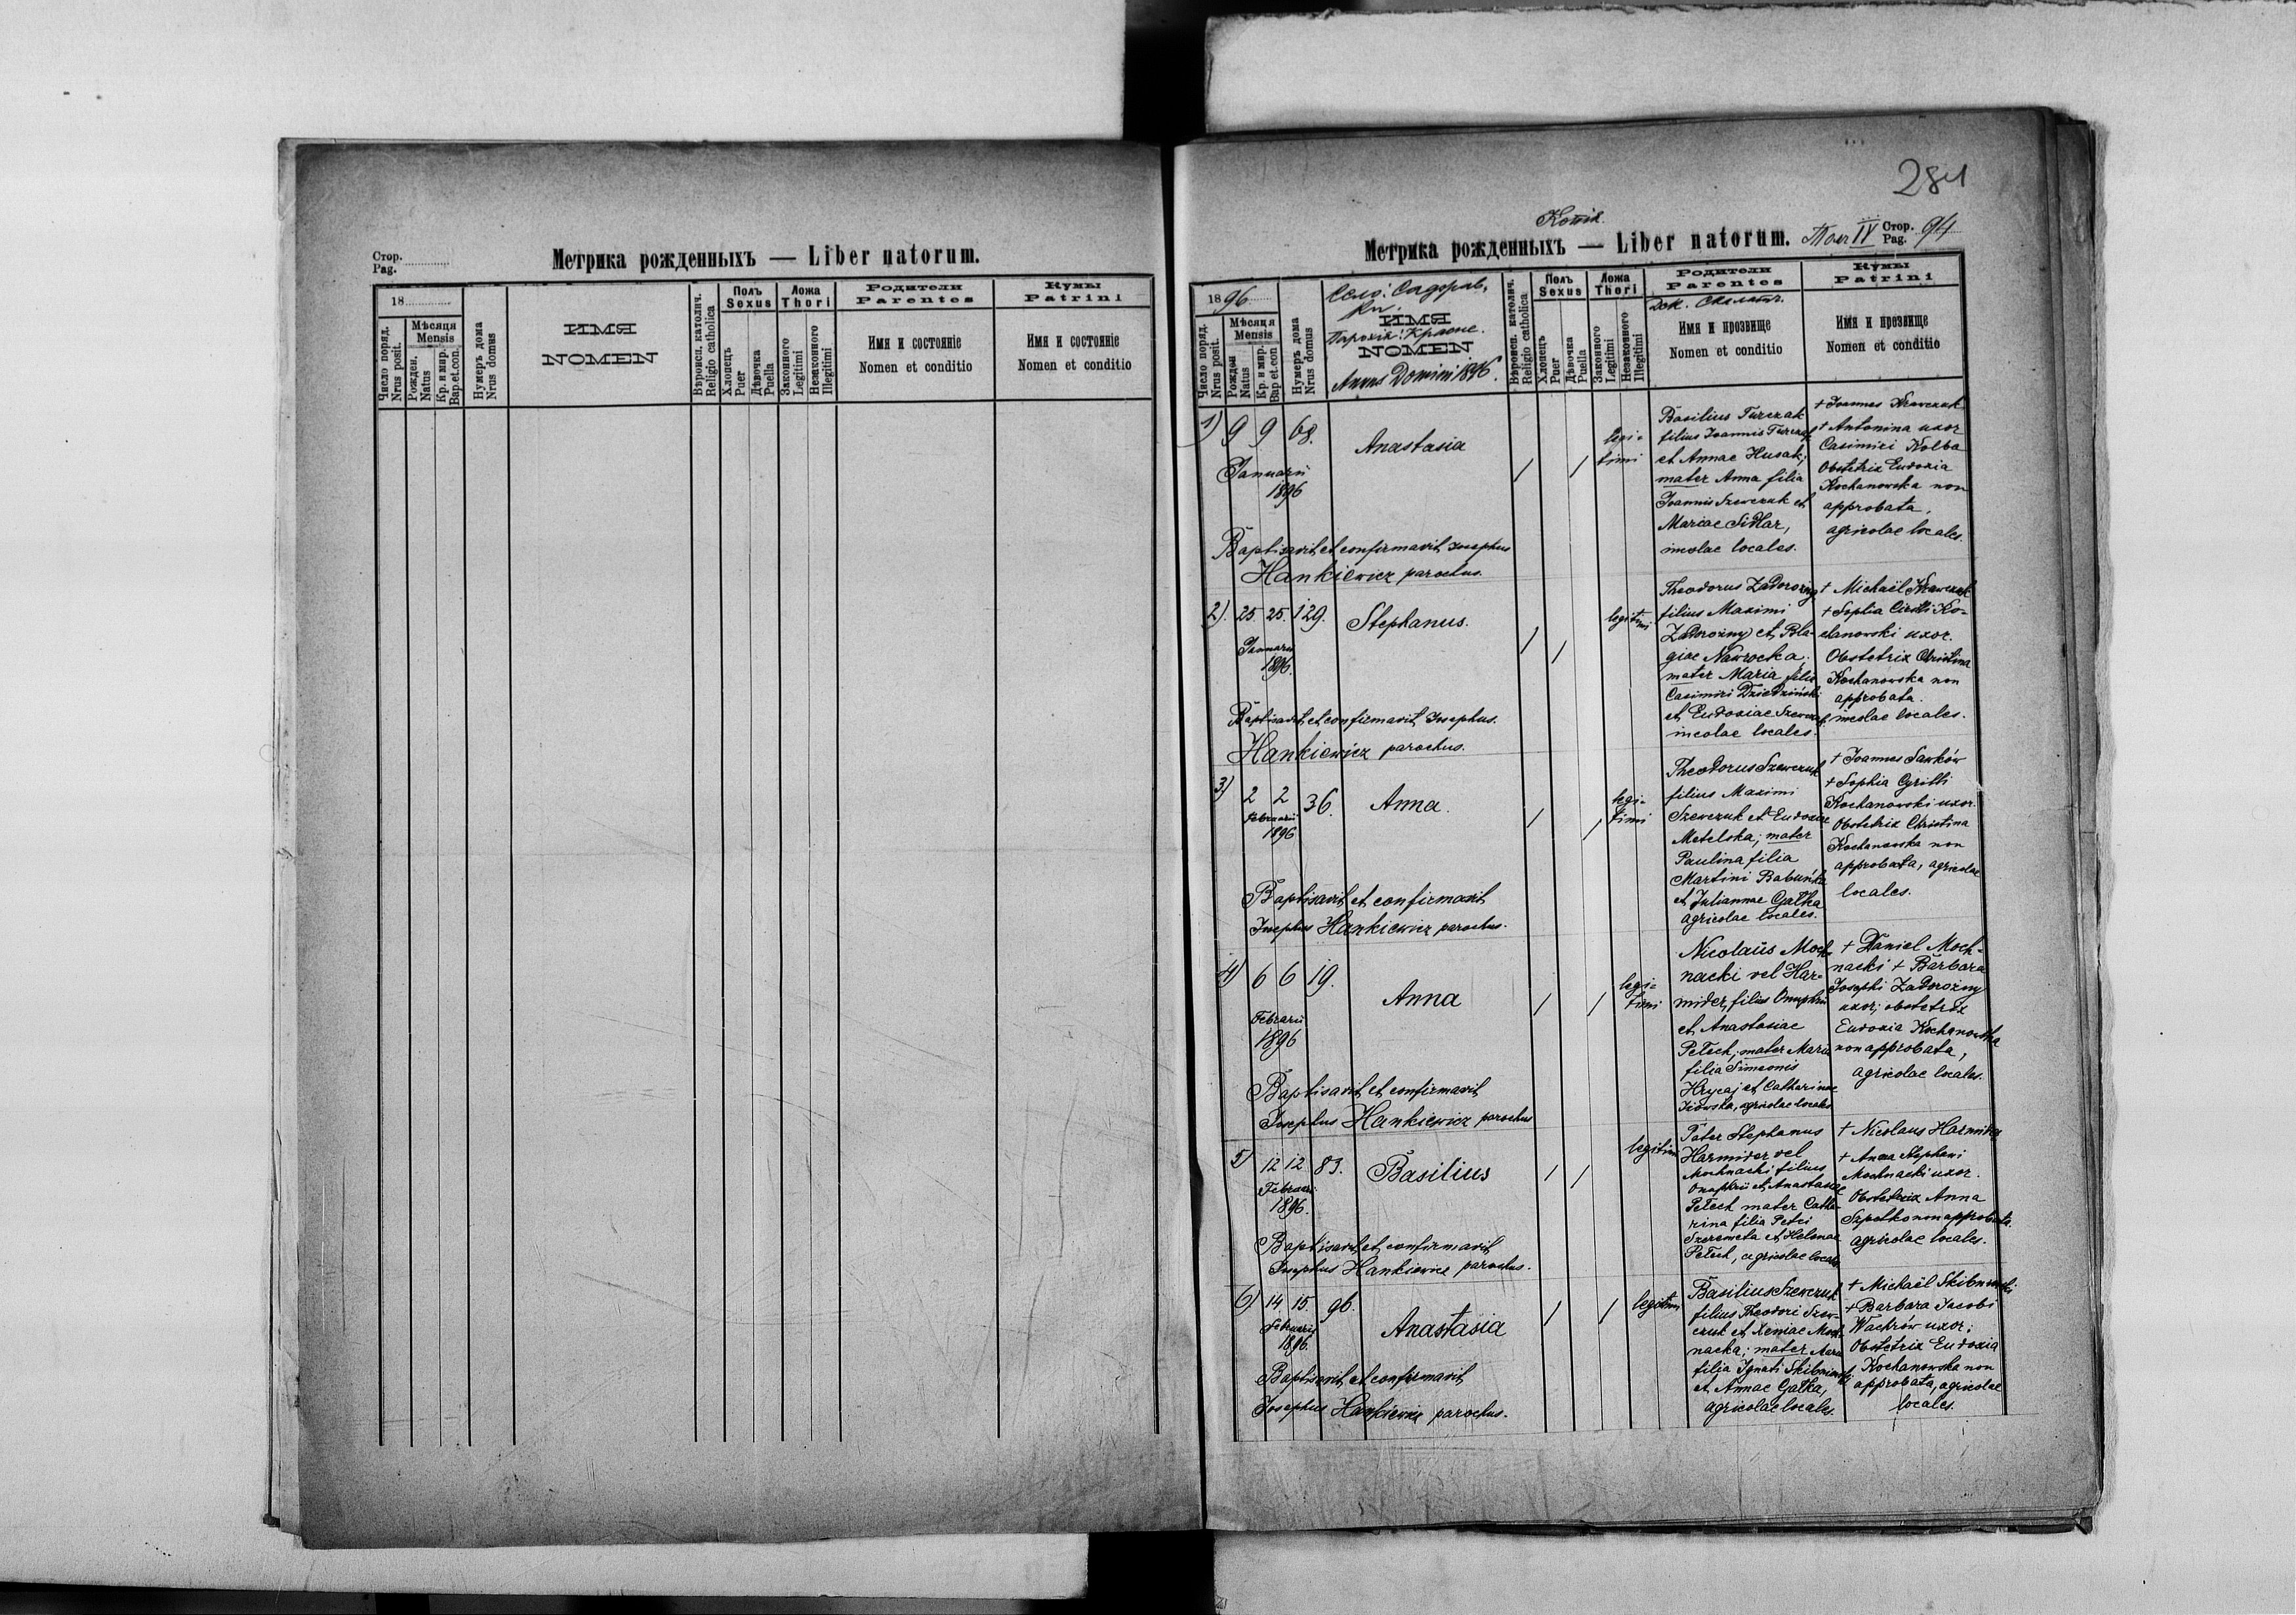 Стор.
Pag.
Метрика рожденныхъ — Liber natorum.
18
Число поряд.
Nrus posit.
Мѣсяця
Mensis
Рожден.
Natus
Кр. и мир.
Bap.et.con.
Нумеръ дома
Nrus domus
ИМЯ
NOMEN
Вѣроисп. католич.
Religio catholica
Полъ
Sexus
Хлопецъ
Puer
Дѣвочка
Puella
Ложа
Thori
Законного
Legitimi
Незаконного
Illegitimi
Родители
Parentes
Имя и состояніе
Nomen et conditio
Кумы
Patrini
Имя и состояніе
Nomen et conditio
284
Копія.
Метрика рожденныхъ — Liber natorum.
Том IV
Стор.
Pag.
94
1896
Число поряд.
Nrus posit.
Мѣсяця
Mensis
Рожден
Natus
Кр. и мир.
Bap et.con
Нумеръ дома
Nrus domus
Село: Садорав.
ИМЯ
Парохія: Красне.
NOMEN
Annus Domini 1896.
Вѣроисп. католич.
Religio catholica
Полъ
Sexus
Хлопецъ
Puer
Дѣвочка
Puella
Ложа
Thori
Законного
Legitimi
Незаконного
Illegitimi
Родители
Parentes
Дек. Скалат.
Имя и прозвище
Nomen et conditio
Кумы
Patrini
Имя и прозвище
Nomen et conditio
1) 9 9 68.
Januarii
1896
Anastasia
legi-
timi
Basilius Turczak
filius Joannis Turczak
et Annae Husak;
mater Anna filia
Joannis Szewczuk et
Mariae Sidlar,
incolae locales.
+ Joannes Krawczuk
+ Antonina uxor
Casimiri Kolba
Obstetrix Eudoxia
Kochanowska non
approbata,
agricolae locales.
Baptisavit et confirmavit Josephus
Hankiewicz parochus.
2). 25. 25. 129.
Januarii
1896.
Stephanus.
legitimi
Theodorus Zadorożny
filius Maximi
Zadorożny et Pela-
giae Nawrocka;
mater Maria filia
Casimiri Dziedziński
et Eudoxiae Szewczuk
incolae locales.
+ Michaël Krawczuk
+ Sophia Cirilli Ko-
chanowski uxor.
Obstetrix Christina
Kochanowska non
approbata.
incolae locales.
Baptisavit et confirmavit Josephus.
Hankiewicz parochus.
3) 2 2 36.
Februarii
1896
Anna.
legi-
timi
Theodorus Szewczuk
filius Maximi
Szewczuk et Eudoxiae
Metelska; mater
Paulina filia
Martini Babuńka
et Juliannae Gałka
agricolae locales.
+ Joannes Sawków
+ Sophia Cyrilli
Kochanowski uxor.
Obstetrix Christina
Kochanowska non
approbata, agricolae
locales.
Baptisavit et confirmavit
Josephus Hankiewicz parochus.
4) 6 6 19.
Februarii
1896
Anna
legi-
timi
Nicolaüs Moch-
nacki vel Har-
mider, filius Onuphrii
et Anastasiae
Pełech; mater Maria
filia Simeonis
Hrycaj et Catharinae
agricolae locales
+ Daniel Moch-
nacki + Barbara
Josephi Zadorożny
uxor; obstetrix
Eudoxia Kochanowska
non approbata,
agricolae locales.
Baptisavit et confirmavit
Josephus Hankiewicz parochus
5) 12 12 83.
Februarii
1896.
Basilius
legitimi
Pater Stephanus
Harmider vel
Mochnacki filius
Onuphrii et Anastasiae
Pełech mater Catha-
rina filia Petri
Szeremeta et Helenae
Pełech, agricolae locales
+ Nicolaus Harmider
+ Anna Stephani
Mochnacki uxor.
Obstetrix Anna
Szpetko non approbata.
agricolae locales.
Baptisavit et confirmavit
Josephus Hankiewicz parochus.
6) 14 15. 96.
Februarii
1896.
Anastasia
legitimi
Basilius Szewczuk
filius Theodori Szew-
czuk et Xeniae Moch-
nacka; mater Maria
filia Ignatii Skibniewski
et Annae Gałka,
agricolae locales.
+ Michaël Skibniewski
+ Barbara Jacobi
Wachrów uxor;
Obstetrix Eudoxia
Kochanowska non
approbata, agricolae
locales.
Baptisavit et confirmavit
Josephus Hankiewicz parochus.